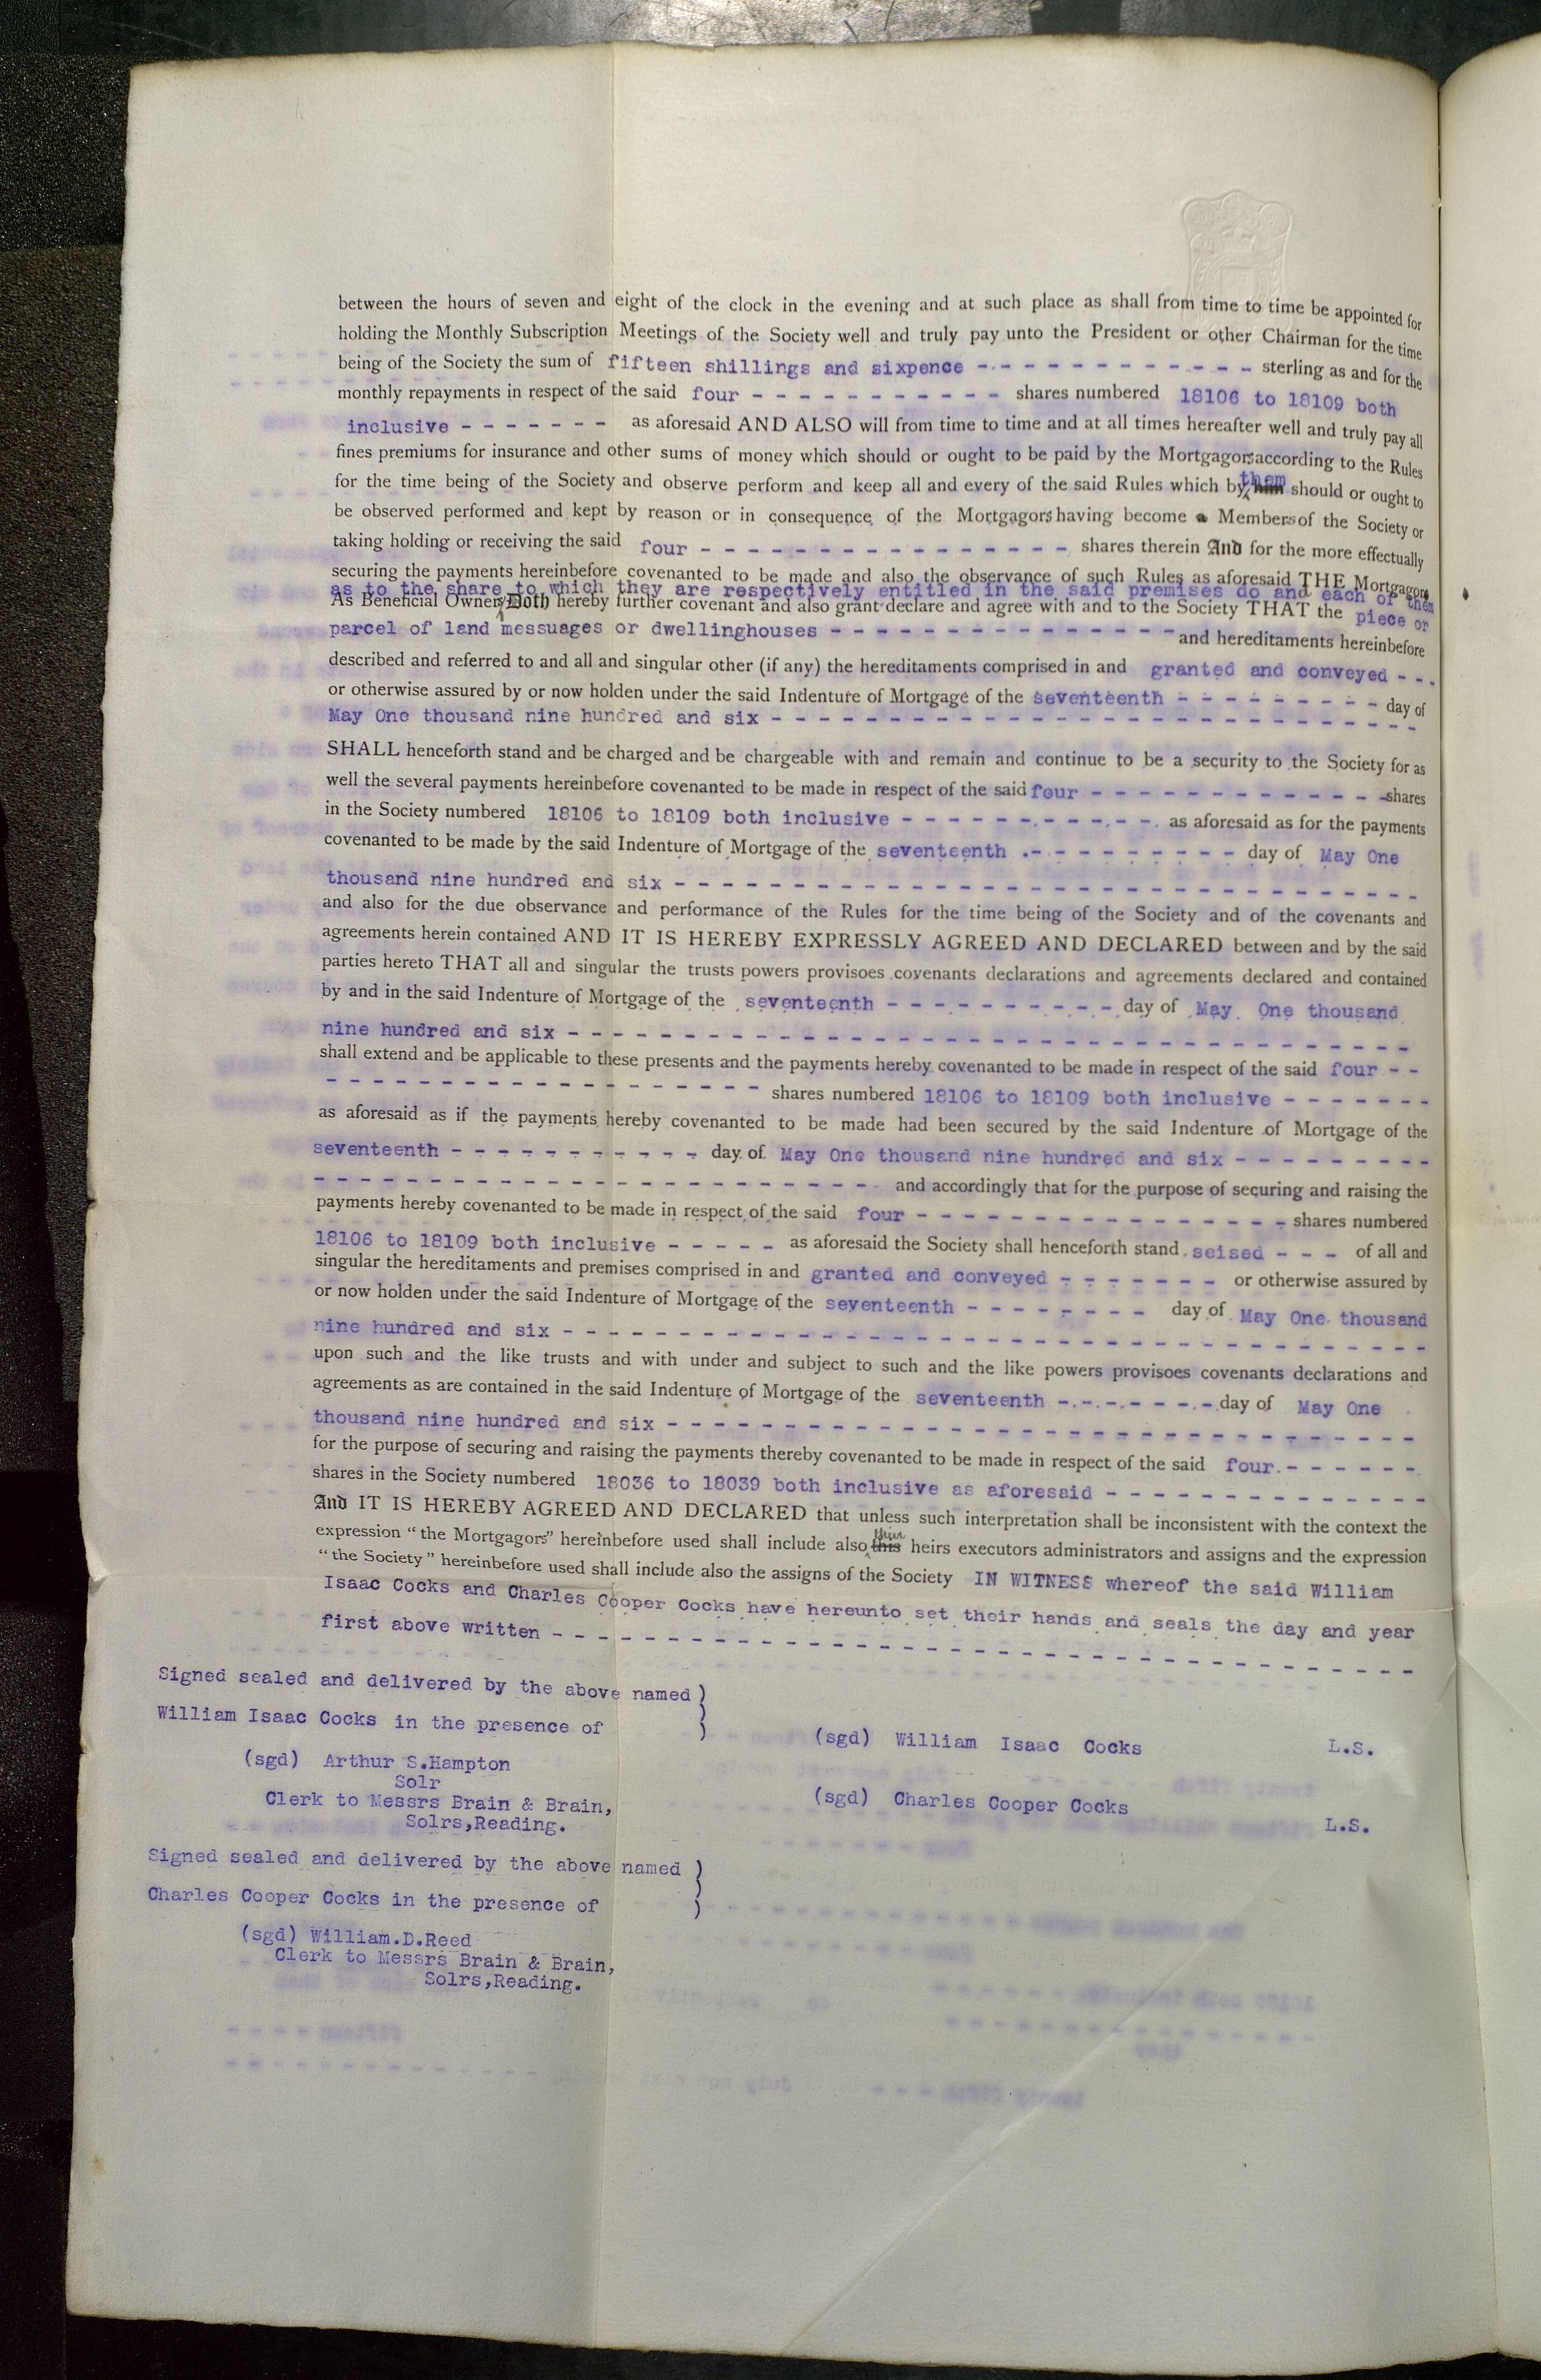 between the hours of seven and eight of the clock in the evening and at such place as shall from time to time be appointed for
holding the Monthly Subscription Meetings of the Society well and truly pay unto the President or other Chairman for the time
being of the Society the sum of fifteen shillings and sixpence - - - - - - - - - - - - sterling as and for the
monthly repayments in respect of the said four - - - - - - - - - - - shares numbered 18106 to 18109 both
inclusive - - - - - - - as aforesaid AND ALSO will from time to time and at all times hereafter well and truly pay all
fines premiums for insurance and other sums of money which should or ought to be paid by the Mortgagors according to the Rules
for the time being of the Society and observe perform and keep all and every of the said Rules which by them him should or ought to
be observed performed and kept by reason or in consequence of the Mortgagors having become a Members of the Society or
taking holding or receiving the said four - - - - - - - - - - - - - - - - shares therein And for the more effectually
securing the payments hereinbefore covenanted to be made and also the observance of such Rules as aforesaid THE Mortgagors
as to the share to which they are respectively entitled in the said premises do and each of them
As Beneficial Owners Doth hereby further covenant and also grant declare and agree with and to the Society THAT the piece or
parcel of land messuages or dwellinghouses - - - - - - - - - - - - - - - and hereditaments hereinbefore
described and referred to and all and singular other (if any) the hereditaments comprised in and granted and conveyed - - -
or otherwise assured by or now holden under the said Indenture of Mortgage of the seventeenth - - - - - - - - - day of
May One thousand nine hundred and six - - - - - - - - - - - - - - - - - - - - - - - - - - - -
SHALL henceforth stand and be charged and be chargeable with and remain and continue to be a security to the Society for as
well the several payments hereinbefore covenanted to be made in respect of the said four - - - - - - - - - - - - - shares
in the Society numbered 18106 to 18109 both inclusive - - - - - - - - - - - - as aforesaid as for the payments
covenanted to be made by the said Indenture of Mortgage of the seventeenth - - - - - - - - - - day of May One
thousand nine hundred and six - - - - - - - - - - - - - - - - - - - - - - - - - - - - - - - -
and also for the due observance and performance of the Rules for the time being of the Society and of the covenants and
agreements herein contained AND IT IS HEREBY EXPRESSLY AGREED AND DECLARED between and by the said
parties hereto THAT all and singular the trusts powers provisoes covenants declarations and agreements declared and contained
by and in the said Indenture of Mortgage of the seventeenth - - - - - - - - - - - day of May One thousand
nine hundred and six - - - - - - - - - - - - - - - - - - - - - - - - - - - - - - - - - - - - -
shall extend and be applicable to these presents and the payments hereby covenanted to be made in respect of the said four - -
- - - - - - - - - - - - - - - - - - - shares numbered 18106 to 18109 both inclusive - - - - - - -
as aforesaid as if the payments hereby covenanted to be made had been secured by the said Indenture of Mortgage of the
seventeenth - - - - - - - - - - - day of May One thousand nine hundred and six - - - - - - - - -
- - - - - - - - - - - - - - - - - - - - - - - - - and accordingly that for the purpose of securing and raising the
payments hereby covenanted to be made in respect of the said four - - - - - - - - - - - - - - - - shares numbered
18106 to 18109 both inclusive - - - - - as aforesaid the Society shall henceforth stand seised - - - of all and
singular the hereditaments and premises comprised in and granted and conveyed - - - - - - - or otherwise assured by
or now holden under the said Indenture of Mortgage of the seventeenth - - - - - - - - day of May One thousand
nine hundred and six - - - - - - - - - - - - - - - - - - - - - - - - - - - - - - - - - - - - - -
upon such and the like trusts and with under and subject to such and the like powers provisoes covenants declarations and
agreements as are contained in the said Indenture of Mortgage of the seventeenth - - - - - - - day of May One
thousand nine hundred and six - - - - - - - - - - - - - - - - - - - - - - - - - - - - - - - - -
for the purpose of securing and raising the payments thereby covenanted to be made in respect of the said four - - - - - -
shares in the Society numbered 18036 to 18039 both inclusive as aforesaid - - - - - - - - - - - - - -
And IT IS HEREBY AGREED AND DECLARED that unless such interpretation shall be inconsistent with the context the
expression "the Mortgagors" hereinbefore used shall include also their this heirs executors administrators and assigns and the expression
"the Society" hereinbefore used shall include also the assigns of the Society IN WITNESS whereof the said William
Isaac Cocks and Charles Cooper Cocks have hereunto set their hands and seals the day and year
first above written - - - - - - - - - - - - - - - - - - - - - - - - - - - - - - - - - - - - - -
Signed sealed and delivered by the above named )
William Isaac Cocks in the presence of )
(sgd) William Isaac Cocks L.S.
(sgd) Arthur S.Hampton
Solr
Clerk to Messrs Brain & Brain,
Solrs,Reading.
(sgd) Charles Cooper Cocks
L.S.
Signed sealed and delivered by the above named )
Charles Cooper Cocks in the presence of )
(sgd) William.D.Reed
Clerk to Messrs Brain & Brain,
Solrs,Reading.